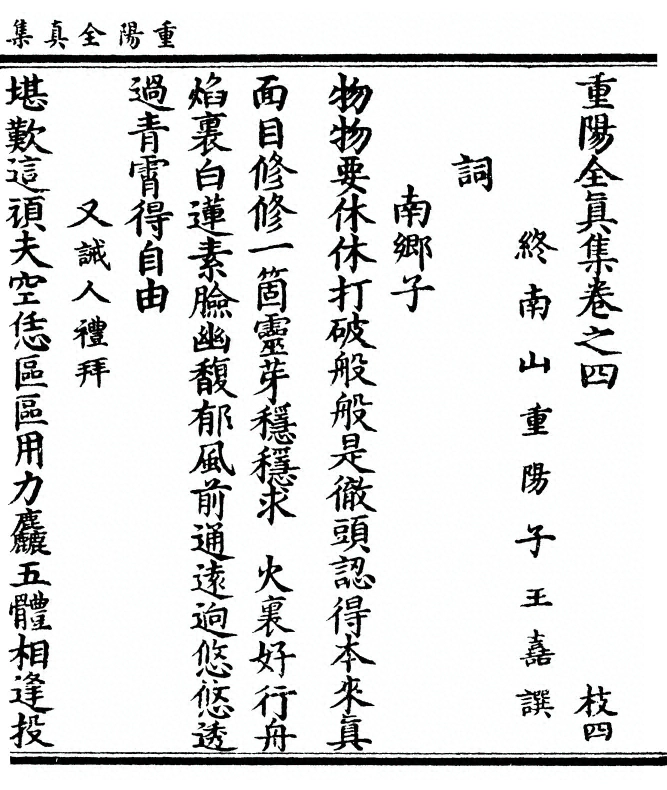 重陽全真集
重陽全眞集卷之四　枝四
終南山重陽子王嚞譔
詞
南鄉子
物物要休休打破般般是徹頭認得本來眞
面目修修一箇靈芽穩穩求　火裏好行舟
焰裏白蓮素臉幽馥郁風前通遠逈悠悠透
過青霄得自由
又誡人禮拜
堪歎這頑夫空恁區區用力麤五體相逢投